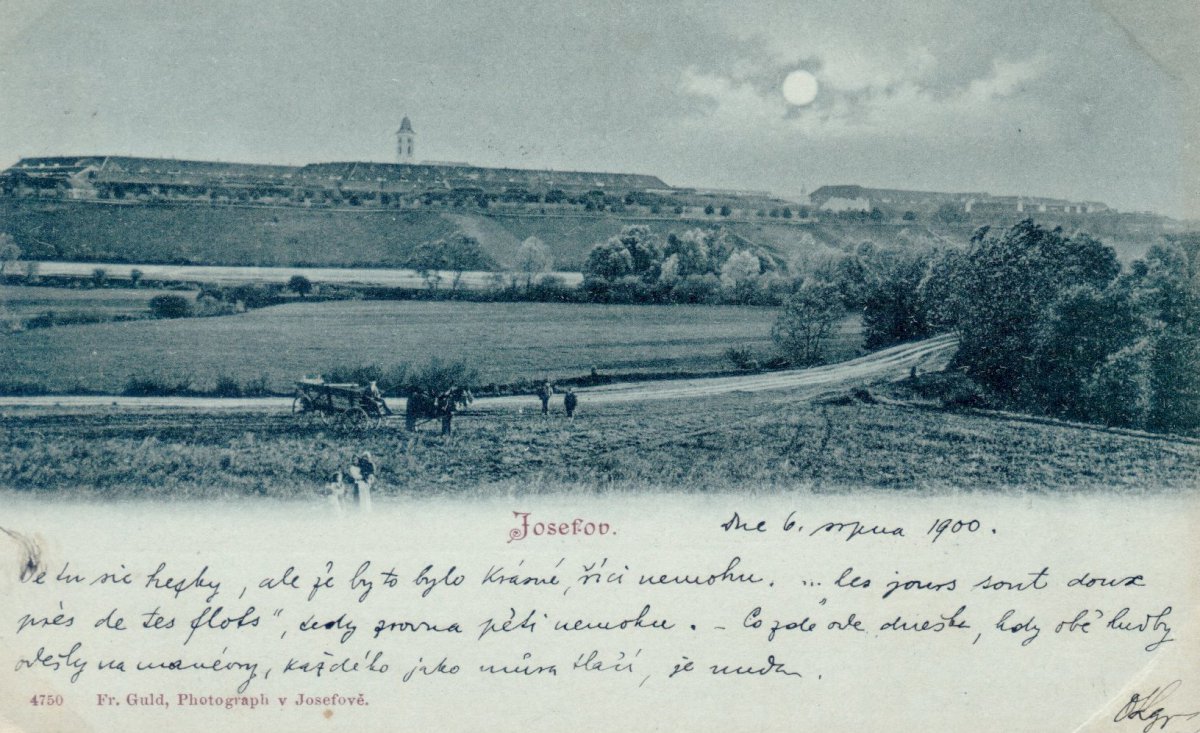 Josefov.
Dne 6. srpna 1900.
Je tu sic hezky, ale že by to bylo krásné, říci nemohu. ... les jours sont doux
près de tes flots“, tedy zrovna pěti nemohu. – Co zde dneska, kdy obě hudby
odešly na manévry, každého jako můra tlačí, je nuda.
4750 Fr. Guld, Photograph v Josefově.